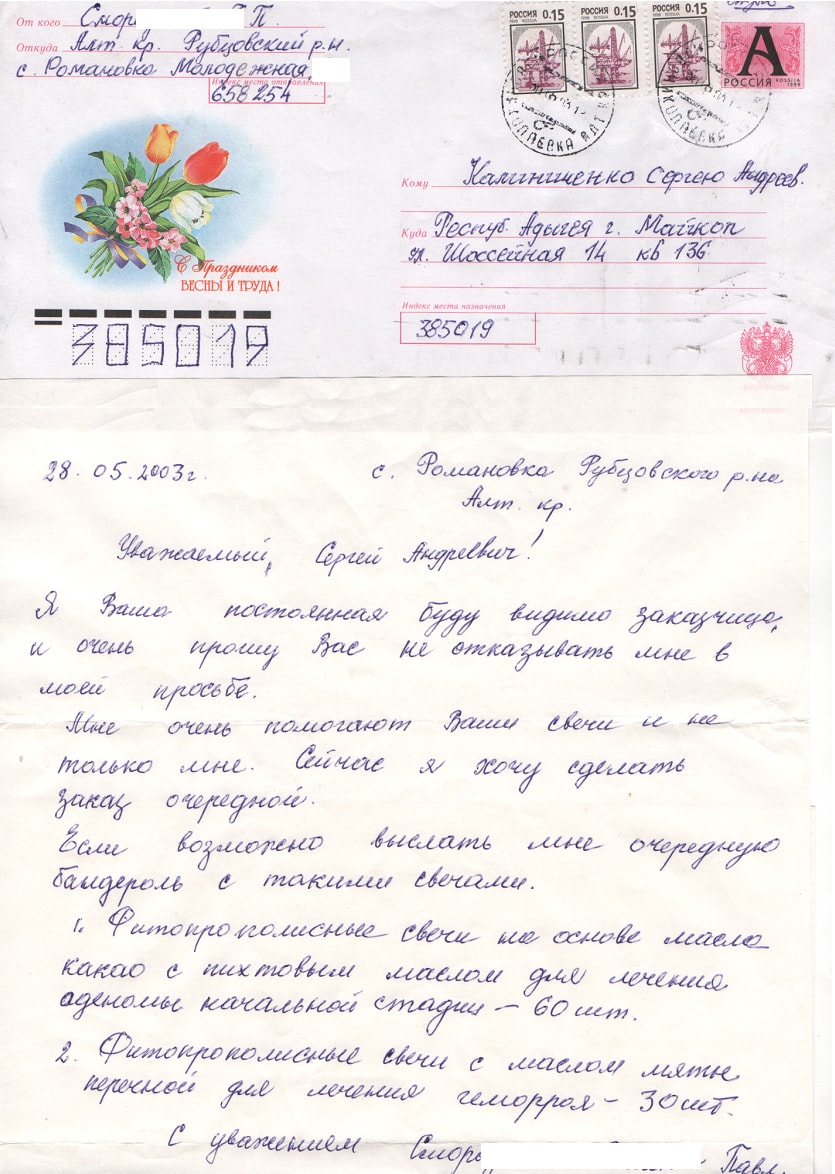 От кого Смор П.
Откуда Алт. кр. Рубцовский р.н.
с. Романовка Молодежная,
Индекс места отправления
658254
РОССИЯ 0.15
1998 ROSSIJA
РОССИЯ 0.15
1998 ROSSIJA
РОССИЯ 0.15
1998 ROSSIJA
А
РОССИЯ ROSSIJA
1999
С Праздником
ВЕСНЫ И ТРУДА!
385019
Кому Калиниченко Сергею Андреев.
Куда Респуб. Адыгея г. Майкоп
ул. Шоссейная 14 кв 136
Индекс места назначения
385019
28.05.2003г. с. Романовка Рубцовского р.на
Алт. кр.
Уважаемый, Сергей Андреевич!
Я Ваша постоянная буду видимо заказчица,
и очень прошу Вас не отказывать мне в
моей просьбе.
Мне очень помогают Ваши свечи и не
только мне. Сейчас я хочу сделать
заказ очередной.
Если возможно выслать мне очередную
бандероль с такими свечами.
1. Фитопрополисные свечи на основе масла
какао с пихтовым маслом для лечения
аденомы начальной стадии – 60 шт.
2. Фитопрополисные свечи с маслом мяты
перечной для лечения геморроя – 30 шт.
С уважением Смор Павл.